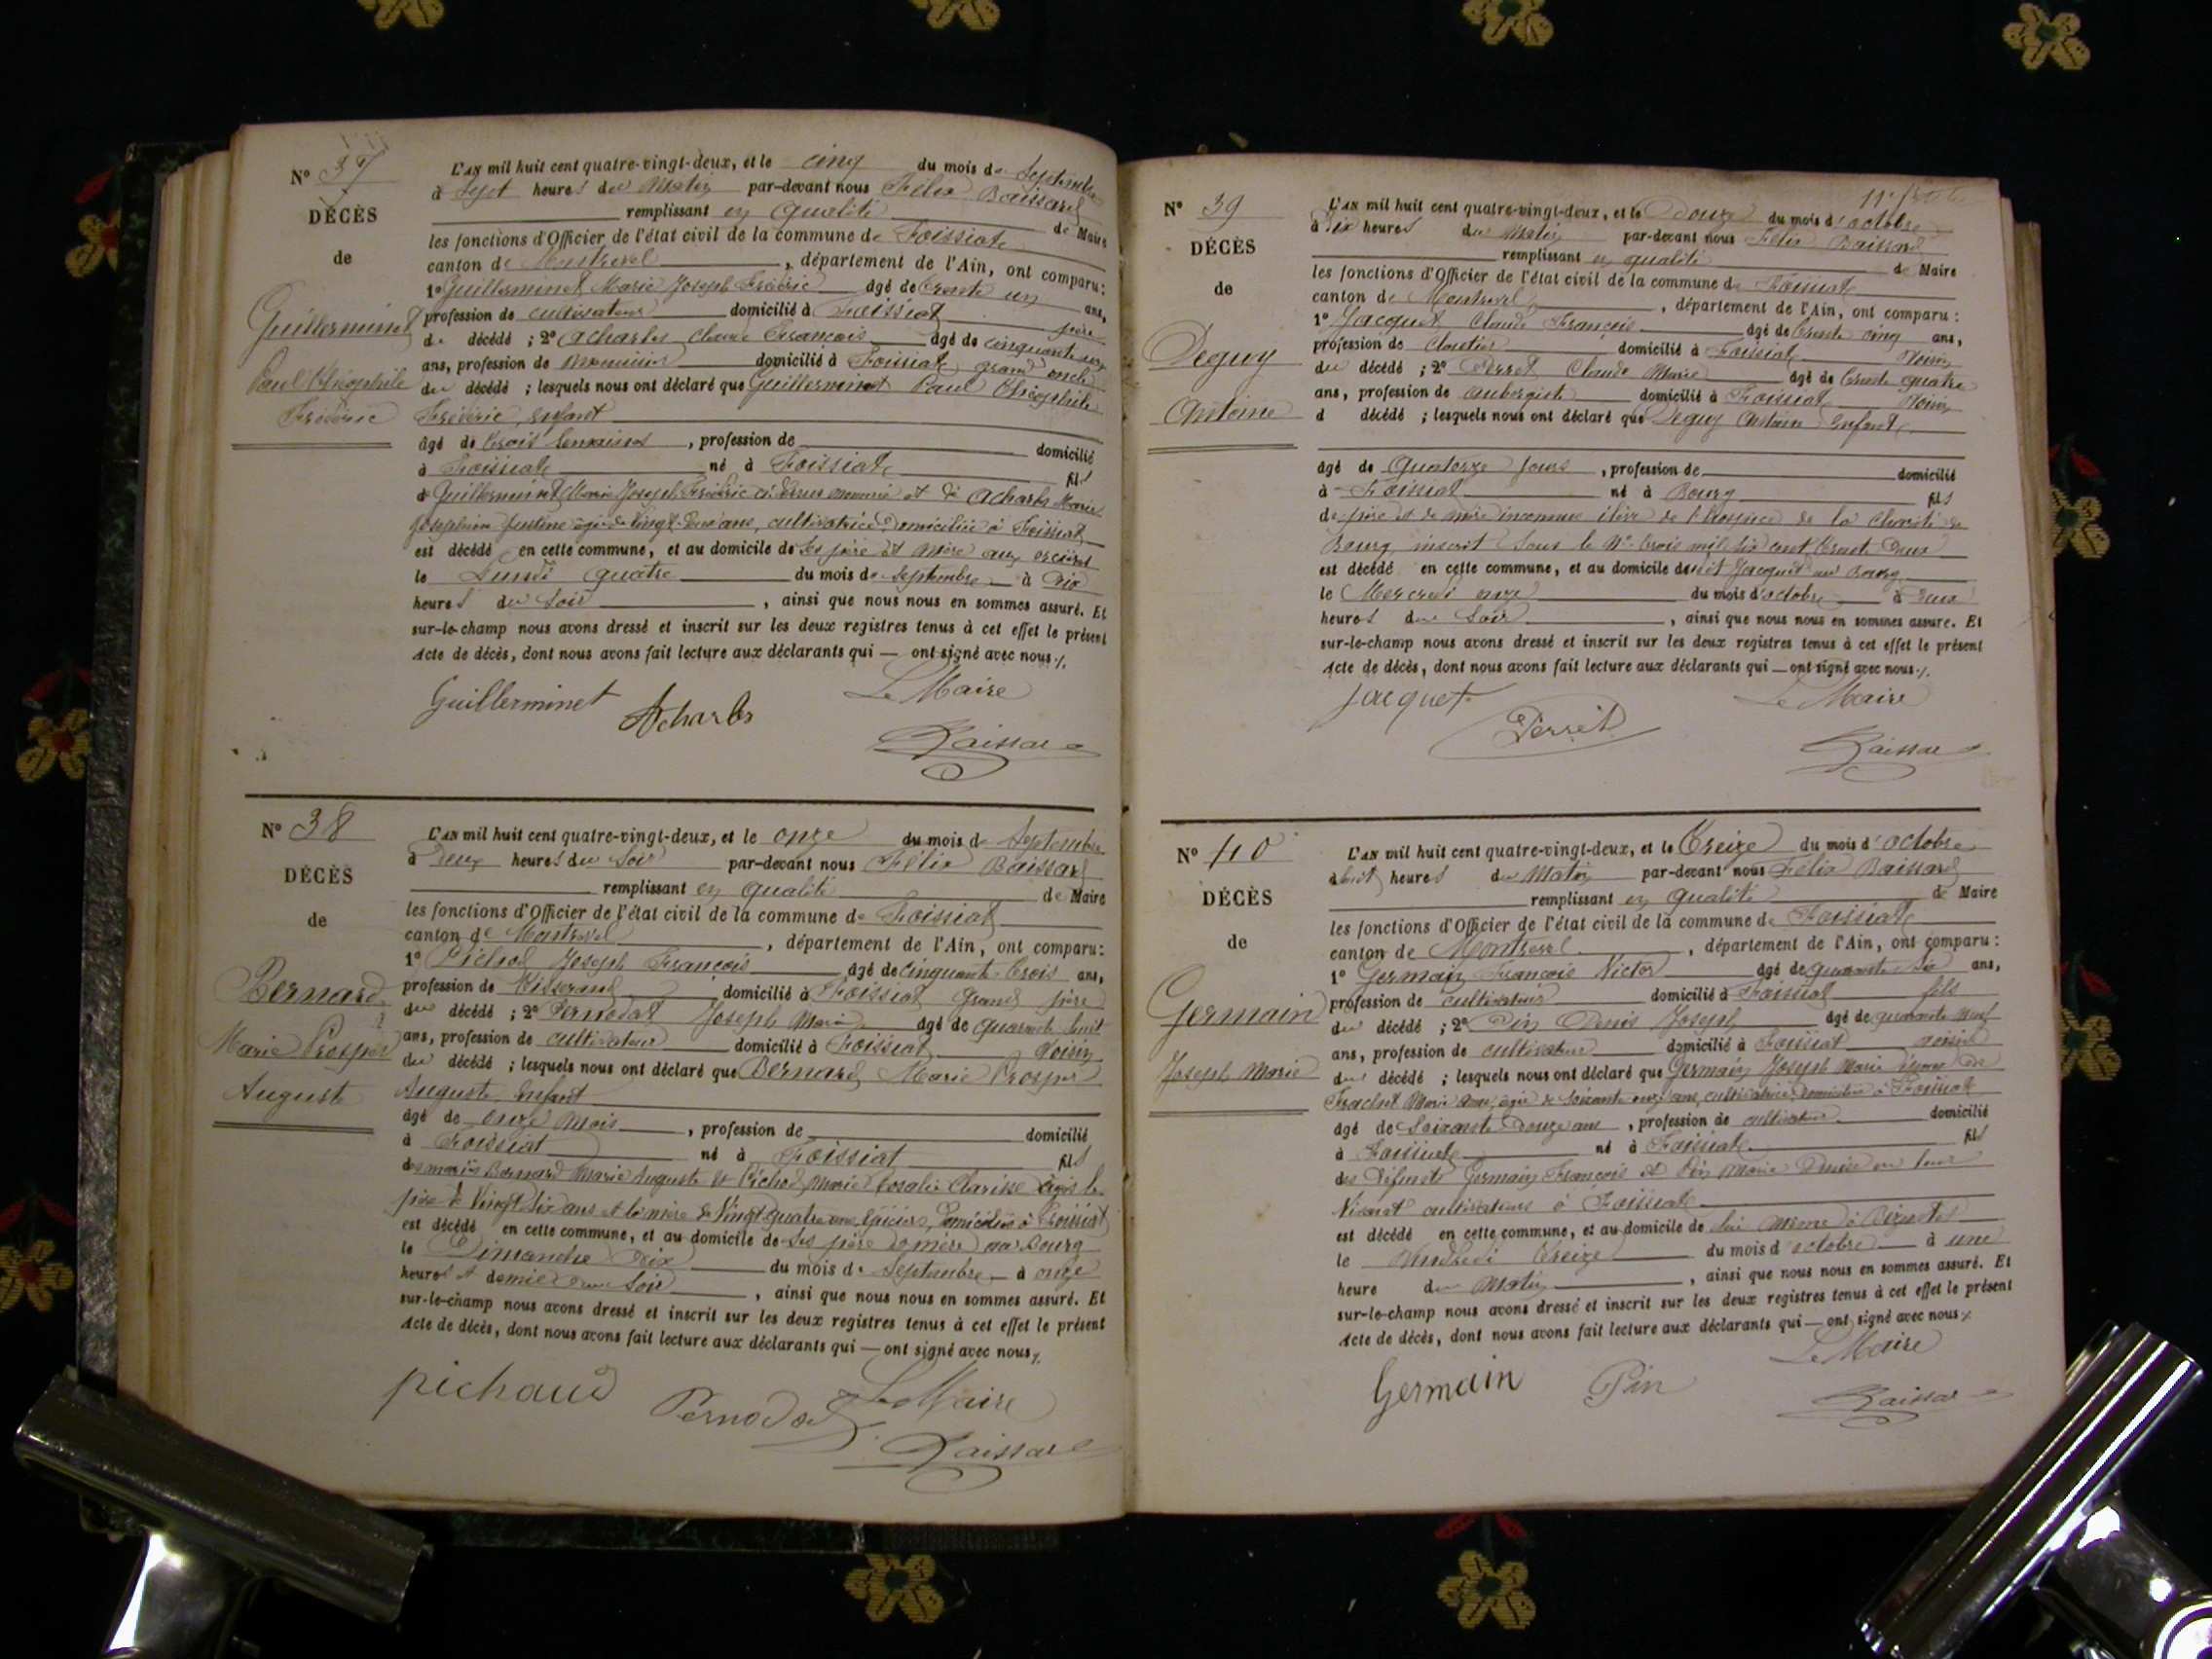 Nº 37
DÉCÈS
de
Guillerminet
Paul Théophile
Frédéric
L'AN mil huit cent quatre-vingt-deux, et le cinq du mois de Septembre
à Sept heures du Matin par-devant nous Félix Baissard
remplissant en qualité de Maire
les fonctions d'Officier de l'état civil de la commune de Foissiat
canton de Montrevel, département de l'Ain, ont comparu :
1º Guillerminet Marie Joseph Frédéric âgé de trente un ans,
profession de cultivateur domicilié à Foissiat père
du décédé ; 2º Acharles Claude François âgé de cinquante un
ans, profession de Menuisier domicilié à Foissiat grand oncle
du décédé ; lesquels nous ont déclaré que Guillerminet Paul Théophile
Frédéric, enfant
âgé de trois semaines, profession de domicilié
à Foissiat né à Foissiat fils
de Guillerminet Marie Joseph Frédéric ci-dessus nommé et de Acharles Marie
Joséphine Justine âgée de vingt-deux ans, cultivatrice domiciliée à Foissiat
est décédé en cette commune, et au domicile de ses père et mère aux
le Lundi quatre du mois de Septembre à dix
heures du Soir, ainsi que nous nous en sommes assuré. Et
sur-le-champ nous avons dressé et inscrit sur les deux registres tenus à cet effet le présent
acte de décès, dont nous avons fait lecture aux déclarants qui — ont signé avec nous ./.
Guillerminet Acharles Le Maire
Baissard
Nº 38
DÉCÈS
de
Bernard
Marie Prosper
Auguste
L'AN mil huit cent quatre-vingt-deux, et le onze du mois de Septembre
à Deux heures du Soir par-devant nous Félix Baissard
remplissant en qualité de Maire
les fonctions d'Officier de l'état civil de la commune de Foissiat
canton de Montrevel, département de l'Ain, ont comparu :
1º Pichod Joseph François âgé de cinquante trois ans,
profession de Tisserand domicilié à Foissiat Grand père
du décédé ; 2º Pernodat Joseph Marie âgé de quarante huit
ans, profession de cultivateur domicilié à Foissiat Voisin
du décédé ; lesquels nous ont déclaré que Bernard Marie Prosper
Auguste, Enfant
âgé de onze mois, profession de domicilié
à Foissiat né à Foissiat fils
des mariés Bernard Marie Auguste et Pichod Marie Rosalie Clarisse âgés le
père de Vingt six ans et la mère de Vingt quatre ans, épiciers, domiciliés à Foissiat
est décédé en cette commune, et au domicile de ses père et mère au Bourg
le Dimanche dix du mois de Septembre à onze
heures et demie du Soir, ainsi que nous nous en sommes assuré. Et
sur-le-champ nous avons dressé et inscrit sur les deux registres tenus à cet effet le présent
acte de décès, dont nous avons fait lecture aux déclarants qui — ont signé avec nous ./.
pichaud Pernodat Le Maire
Baissard
Nº 39
DÉCÈS
de
Deguy
Antoine
L'AN mil huit cent quatre-vingt-deux, et le Douze du mois d'octobre
à Dix heures du Matin par-devant nous Félix Baissard
remplissant en qualité de Maire
les fonctions d'Officier de l'état civil de la commune de Foissiat
canton de Montrevel, département de l'Ain, ont comparu :
1º Jacquet Claude François âgé de trente cinq ans,
profession de Cloutier domicilié à Foissiat Voisin
du décédé ; 2º Perret Claude Marie âgé de trente quatre
ans, profession de aubergiste domicilié à Foissiat Voisin
d décédé ; lesquels nous ont déclaré que Deguy Antoine Enfant
âgé de Quatorze jours, profession de domicilié
à Foissiat né à Bourg fils
de père et de mère inconnus élève de l'hospice de la Charité de
Bourg, inscrit Sous le Nº trois mil six cent trente Deux
est décédé en cette commune, et au domicile dudit Jacquet au Bourg
le Mercredi onze du mois d'octobre à Deux
heures du Soir, ainsi que nous nous en sommes assuré. Et
sur-le-champ nous avons dressé et inscrit sur les deux registres tenus à cet effet le présent
acte de décès, dont nous avons fait lecture aux déclarants qui — ont signé avec nous ./.
Jacquet Le Maire
Perret
Baissard
Nº 40
DÉCÈS
de
Germain
Joseph Marie
L'AN mil huit cent quatre-vingt-deux, et le Treize du mois d'octobre
à huit heures du Matin par-devant nous Félix Baissard
remplissant en qualité de Maire
les fonctions d'Officier de l'état civil de la commune de Foissiat
canton de Montrevel, département de l'Ain, ont comparu :
1º Germain François Victor âgé de quarante six ans,
profession de cultivateur domicilié à Foissiat fils
du décédé ; 2º Pin Denis Joseph âgé de quarante neuf
ans, profession de cultivateur domicilié à Foissiat voisin
du décédé ; lesquels nous ont déclaré que Germain Joseph Marie époux de
Marie Anne, âgée de Soixante onze ans, cultivatrice domiciliée à Foissiat
âgé de Soixante Douze ans, profession de cultivateur domicilié
à Foissiat né à Foissiat fils
des défunts Germain François et Pin Marie Denise en leur
Vivant cultivateurs à Foissiat
est décédé en cette commune, et au domicile de lui même à
le Vendredi treize du mois d'octobre à une
heure du Matin, ainsi que nous nous en sommes assuré. Et
sur-le-champ nous avons dressé et inscrit sur les deux registres tenus à cet effet le présent
acte de décès, dont nous avons fait lecture aux déclarants qui — ont signé avec nous ./.
Germain Pin Le Maire
Baissard